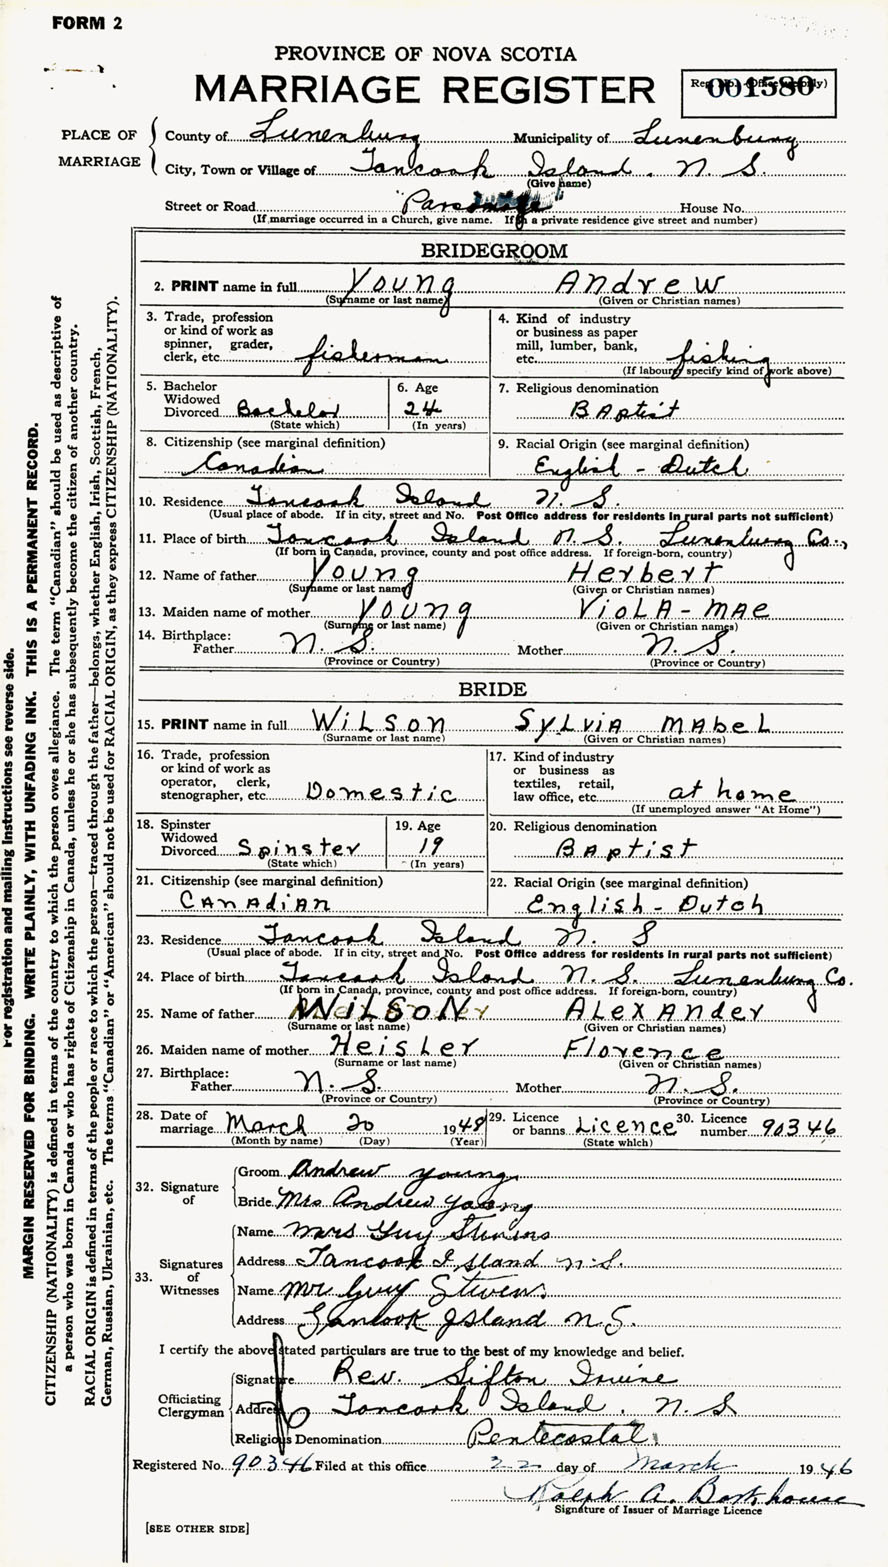 FORM 2
PROVINCE OF NOVA SCOTIA
MARRIAGE REGISTER
001580
PLACE OF MARRIAGE
County of Lunenburg Municipality of Lunenburg
City, Town or Village of Tancook Island. N. S.
(Give name)
Street or Road "Parsonage" House No.
(If marriage occurred in a Church, give name. If in a private residence give street and number)
BRIDEGROOM
2. PRINT name in full Young Andrew
(Surname or last name) (Given or Christian names)
3. Trade, profession or kind of work as spinner, grader, clerk, etc. fisherman
4. Kind of industry or business as paper mill, lumber, bank, etc. fishing
(If labour, specify kind of work above)
5. Bachelor Widowed Divorced Bachelor
(State which)
6. Age 24
(In years)
7. Religious denomination BAptist
8. Citizenship (see marginal definition)
Canadian
9. Racial Origin (see marginal definition)
English - Dutch
10. Residence Tancook Island N. S.
(Usual place of abode. If in city, street and No. Post Office address for residents in rural parts not sufficient)
11. Place of birth Tancook Island N. S. Lunenburg Co.,
(If born in Canada, province, county and post office address. If foreign-born, country)
12. Name of father Young Herbert
(Surname or last name) (Given or Christian names)
13. Maiden name of mother Young VioLA-mae
(Surname or last name) (Given or Christian names)
14. Birthplace:
Father N. S. Mother N. S.
(Province or Country) (Province or Country)
BRIDE
15. PRINT name in full WiLSON SyLViA MAbeL
(Surname or last name) (Given or Christian names)
16. Trade, profession or kind of work as operator, clerk, stenographer, etc. Domestic
17. Kind of industry or business as textiles, retail, law office, etc. at home
(If unemployed answer "At Home")
18. Spinster Widowed Divorced Spinster
(State which)
19. Age 19
(In years)
20. Religious denomination
BAptist
21. Citizenship (see marginal definition)
CANAdiAN
22. Racial Origin (see marginal definition)
English - Dutch
23. Residence Tancook Island N. S
(Usual place of abode. If in city, street and No. Post Office address for residents in rural parts not sufficient)
24. Place of birth Tancook Island N. S. Lunenburg Co.
(If born in Canada, province, county and post office address. If foreign-born, country)
25. Name of father WiLSON ALexANder
(Surname or last name) (Given or Christian names)
26. Maiden name of mother Heisler Florence
(Surname or last name) (Given or Christian names)
27. Birthplace:
Father N. S. Mother N. S.
(Province or Country) (Province or Country)
28. Date of marriage March 20 19
(Month by name) (Day) (Year)
29. Licence or banns Licence
(State which)
30. Licence number 90346
32. Signature of
Groom Andrew young
Bride Mrs Andrew young
33. Signatures of Witnesses
Name mrs Guy Stevens
Address Tancook Island n.S.
Name Mr Guy Stevens
Address Tancook Island N.S.
I certify the above stated particulars are true to the best of my knowledge and belief.
Officiating Clergyman
Signature Rev. Sifton Irvine
Address Tancook Island. N. S
Religious Denomination Pentecostal
Registered No. 90346 Filed at this office 22 day of March 19 46
Ralph A. Barkhouse
Signature of Issuer of Marriage Licence
[SEE OTHER SIDE]
For registration and mailing instructions see reverse side.
MARGIN RESERVED FOR BINDING. WRITE PLAINLY, WITH UNFADING INK. THIS IS A PERMANENT RECORD.
CITIZENSHIP (NATIONALITY) is defined in terms of the country to which the person owes allegiance. The term "Canadian" should be used as descriptive of
a person who was born in Canada or who has rights of Citizenship in Canada, unless he or she has subsequently become the citizen of another country.
RACIAL ORIGIN is defined in terms of the people or race to which the person—traced through the father—belongs, whether English, Irish, Scottish, French,
German, Russian, Ukrainian, etc. The terms "Canadian" or "American" should not be used for RACIAL ORIGIN, as they express CITIZENSHIP (NATIONALITY).